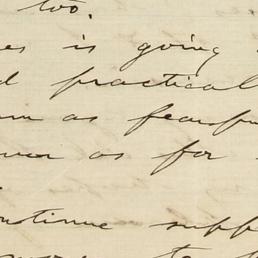 too.
es is going
d practical
m as fearfu
ever as for
ontinue supp